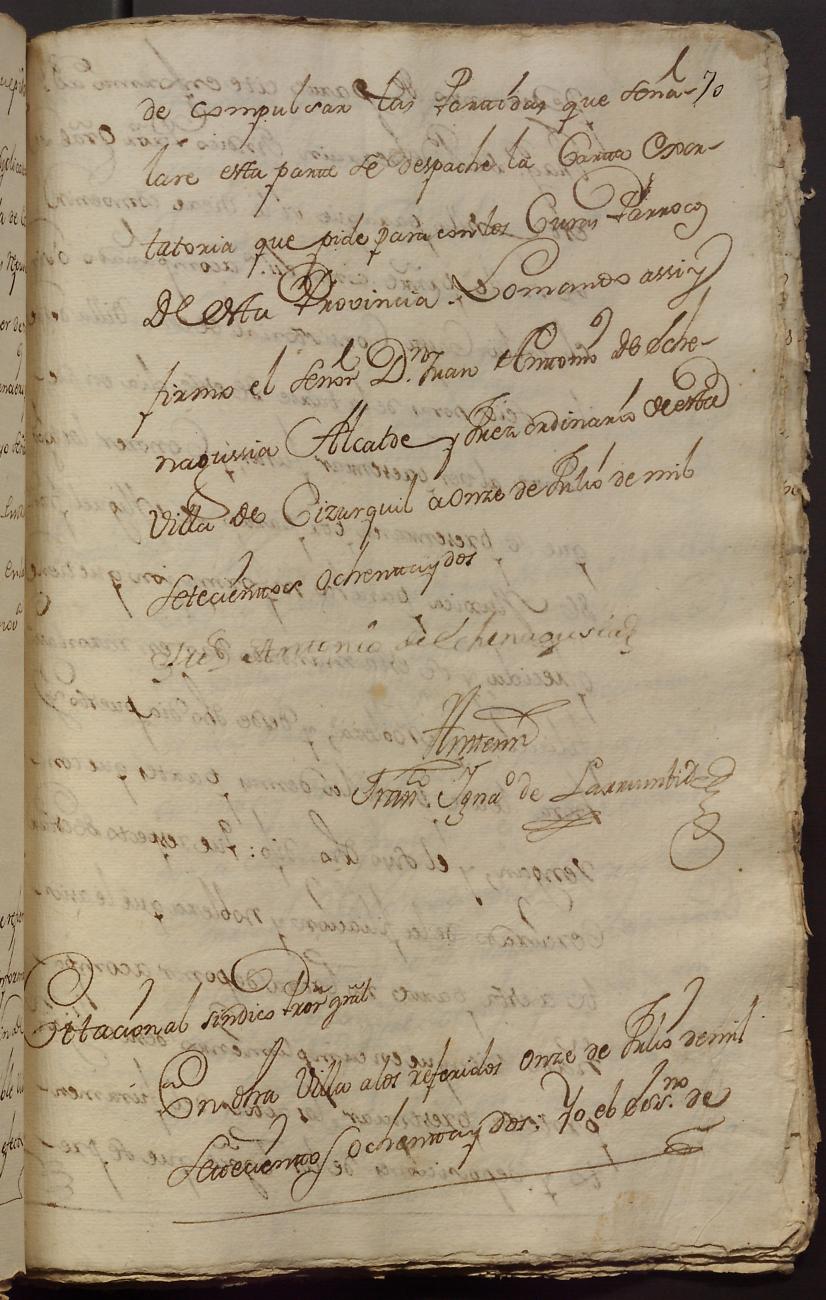 de compulsar las Partidas que seña-
lare esta parte se despache la Carta Exor-
tatoria que pide para con los Curas Parrocos
de esta Provincia. Lo mando assi y
firmo el señor Dn. Juan Antonio de Eche-
nagussia Alcalde y Juez ordinario de esta
Villa de Cizurquil a onze de Julio de mil
setecientos ochenta y dos
Juan Antonio de Echenagusia
Antemi
Franco. Ignao. de Larrumbide
Citacion al sindico Pror. gral
En esta Villa a los referidos onze de Julio de mil
setecientos ochenta y dos: Yo el Essno. de